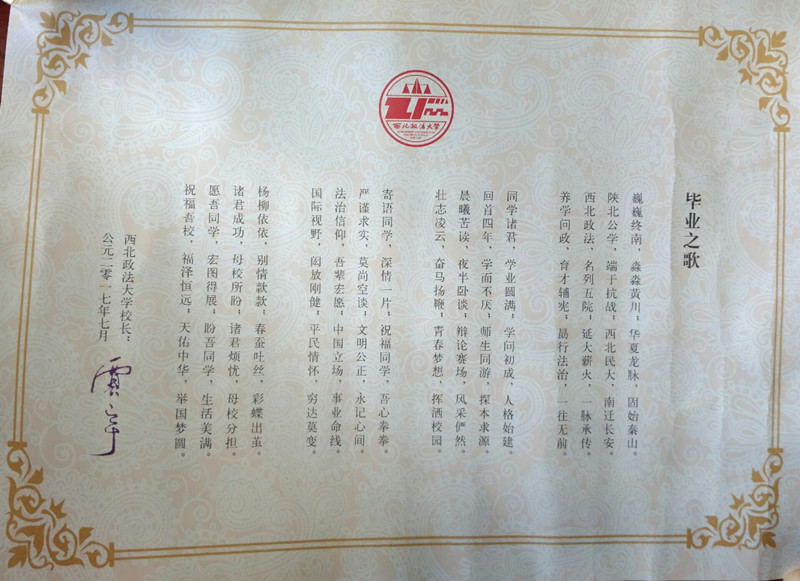 西北政法大学
毕业之歌
巍巍终南，淼淼黄川；华夏龙脉，固始秦山。
陕北公学，端于抗战；西北民大，南迁长安。
西北政法，名列五院；延大薪火，一脉承传。
养学问政，育才辅宪；勗行法治，一往无前。
同学诸君，学业圆满；学问初成，人格始建。
回首四年，学而不厌；师生同游，探本求源。
晨曦苦读，夜半卧谈；辩论赛场，风采俨然。
壮志凌云，奋马扬鞭；青春梦想，挥洒校园。
寄语同学，深情一片；祝福同学，吾心拳拳。
严谨求实，莫尚空谈；文明公正，永记心间。
法治信仰，吾辈宏愿；中国立场，事业命线。
国际视野，闳放刚健；平民情怀，穷达莫变。
杨柳依依，别情款款；春蚕吐丝，彩蝶出茧。
诸君成功，母校所盼；诸君烦忧，母校分担。
愿吾同学，宏图得展；盼吾同学，生活美满。
祝福吾校，福泽恒远；天佑中华，举国梦圆。
西北政法大学校长：
公元二零一七年七月
贾宇